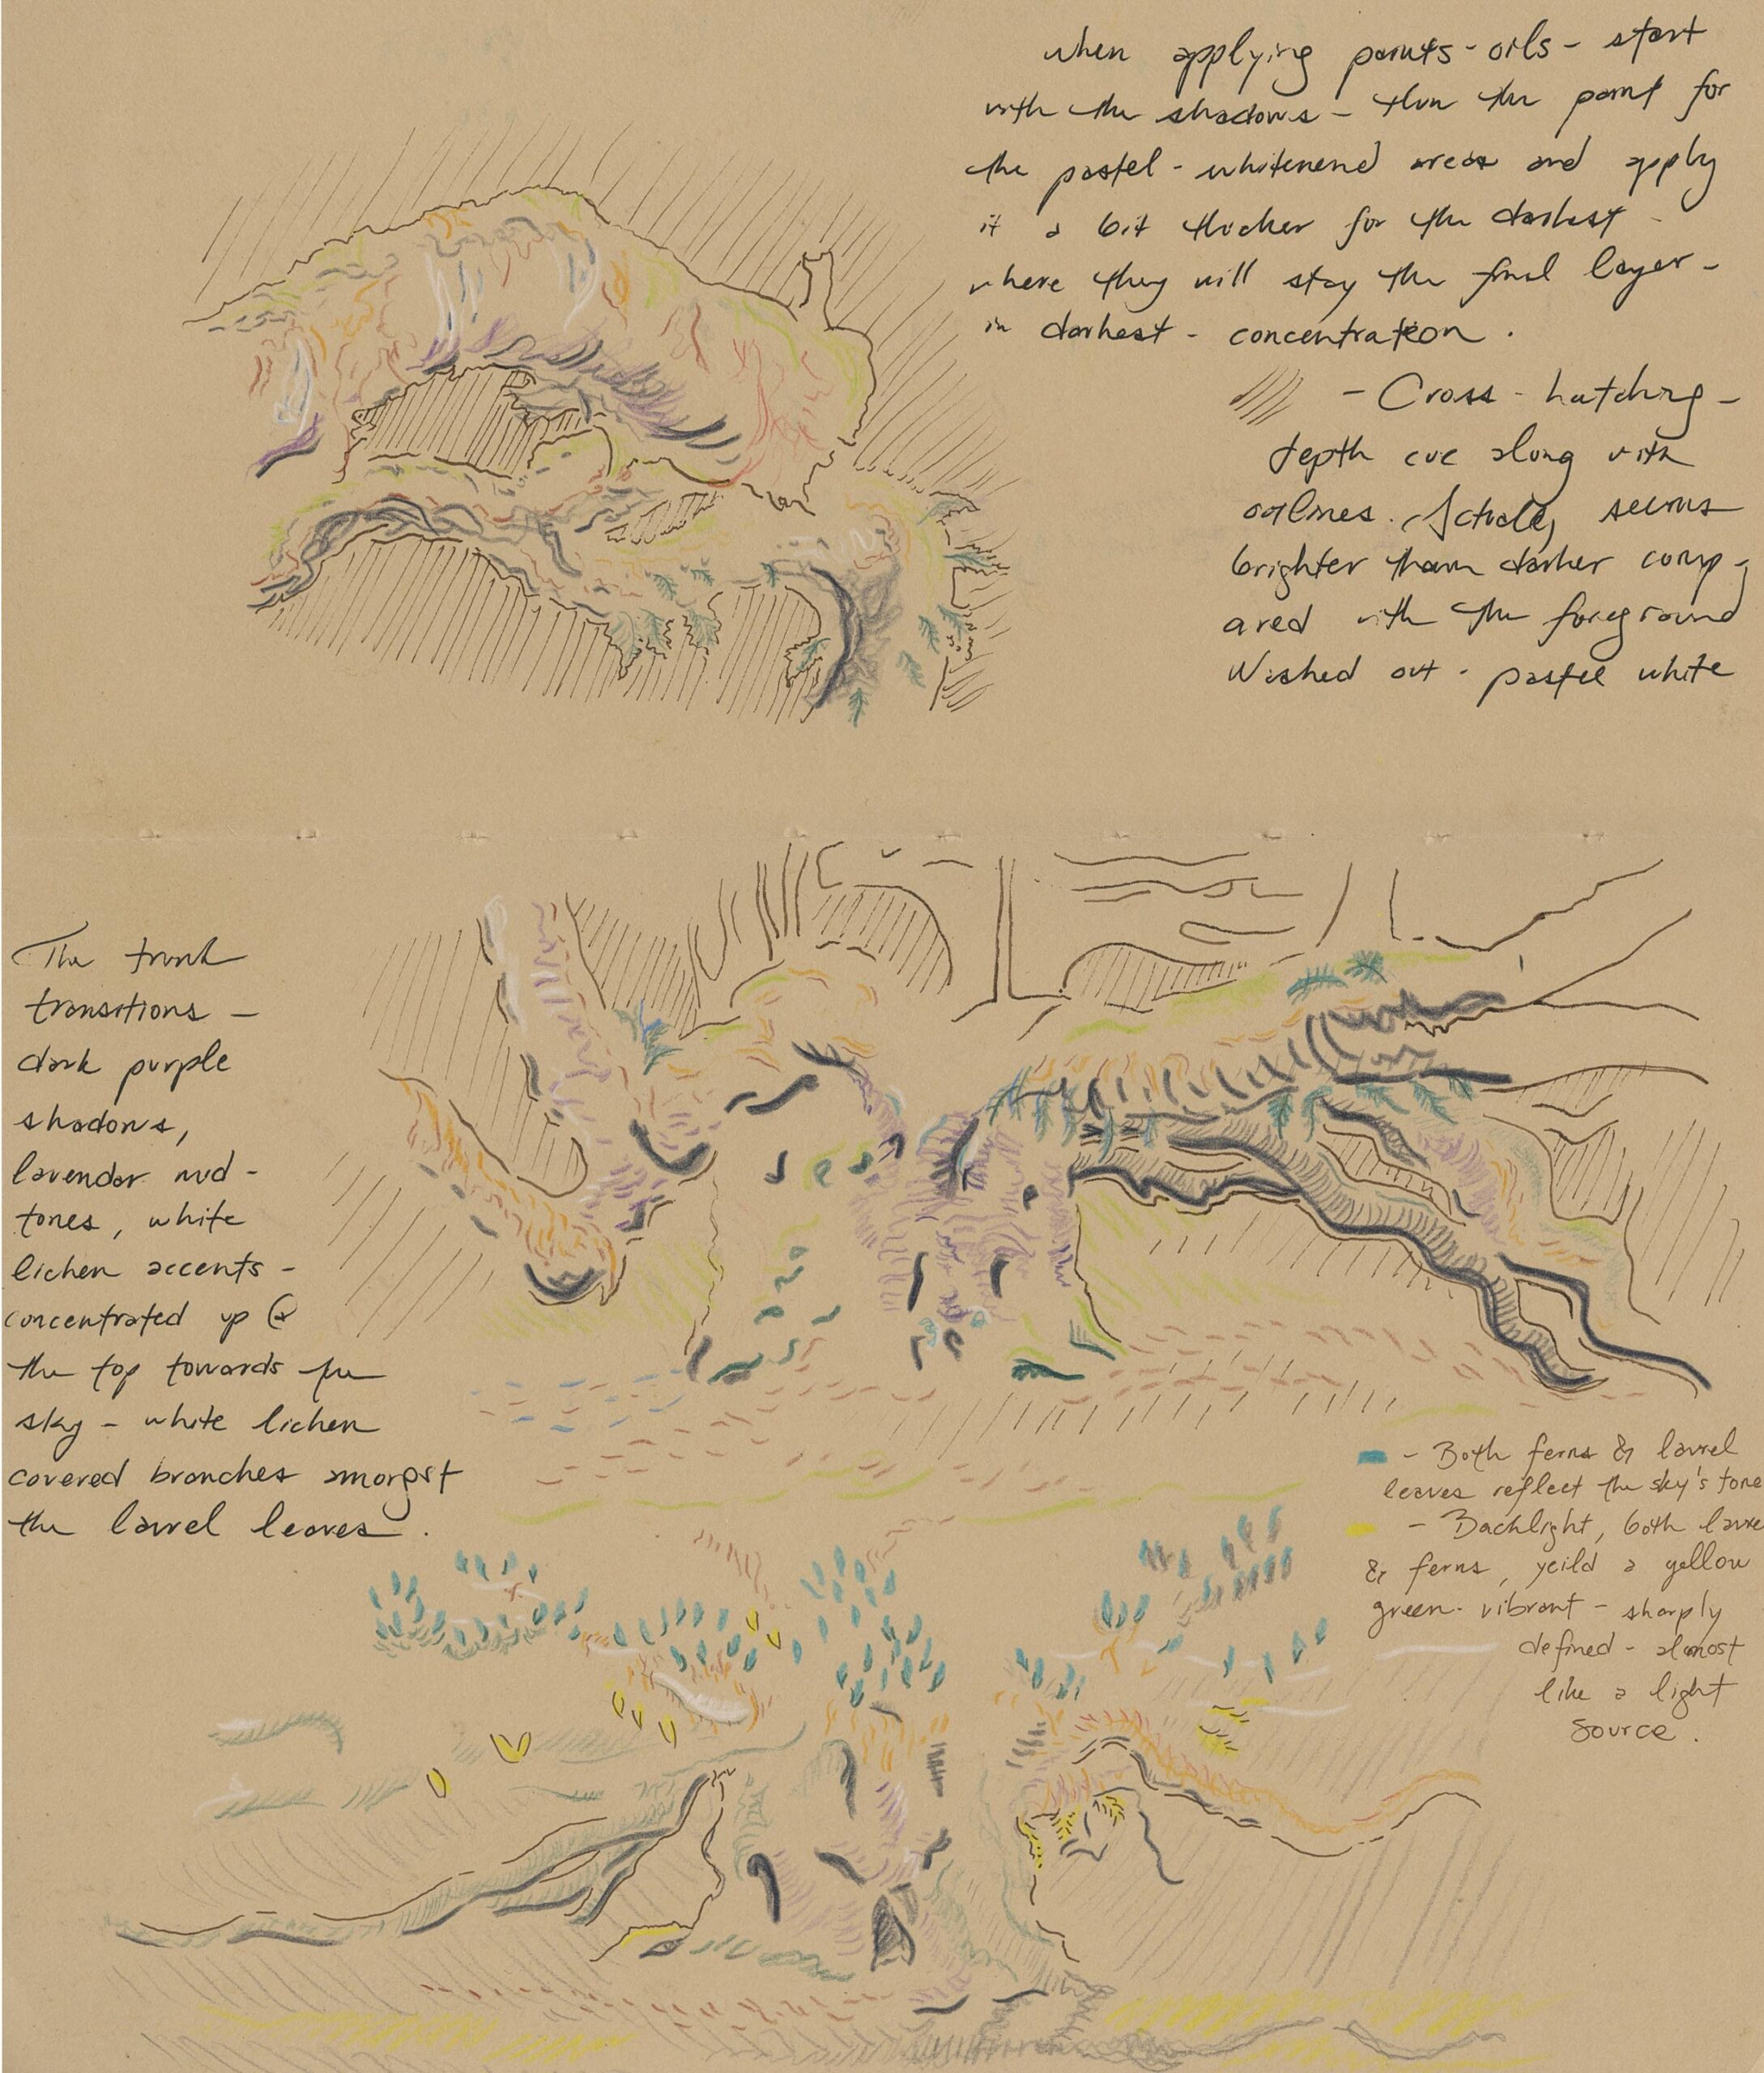 when applying paints - oils - start
with the shadows - thin the paint for
the pastel - whitenend areas and apply
it a bit thicker for the darkest -
where they will stay the final layer -
in darkest - concentration.
- Cross - hatching -
depth cue along with
outlines. Actually seems
brighter tham darker comp -
ared with the foreground
Washed out - pastel white
The trunk
transitions -
dark purple
shadows,
lavendar mid -
tones, white
lichen accents -
concentrated up @
the top towards the
sky - white lichen
covered branches amongst
the laurel leaves.
- Both ferns & laurel
leaves reflect the sky's tone
- Backlight, both laure
& ferns, yeild a yellow
green - vibrant - sharply
defined - almost
like a light
source.